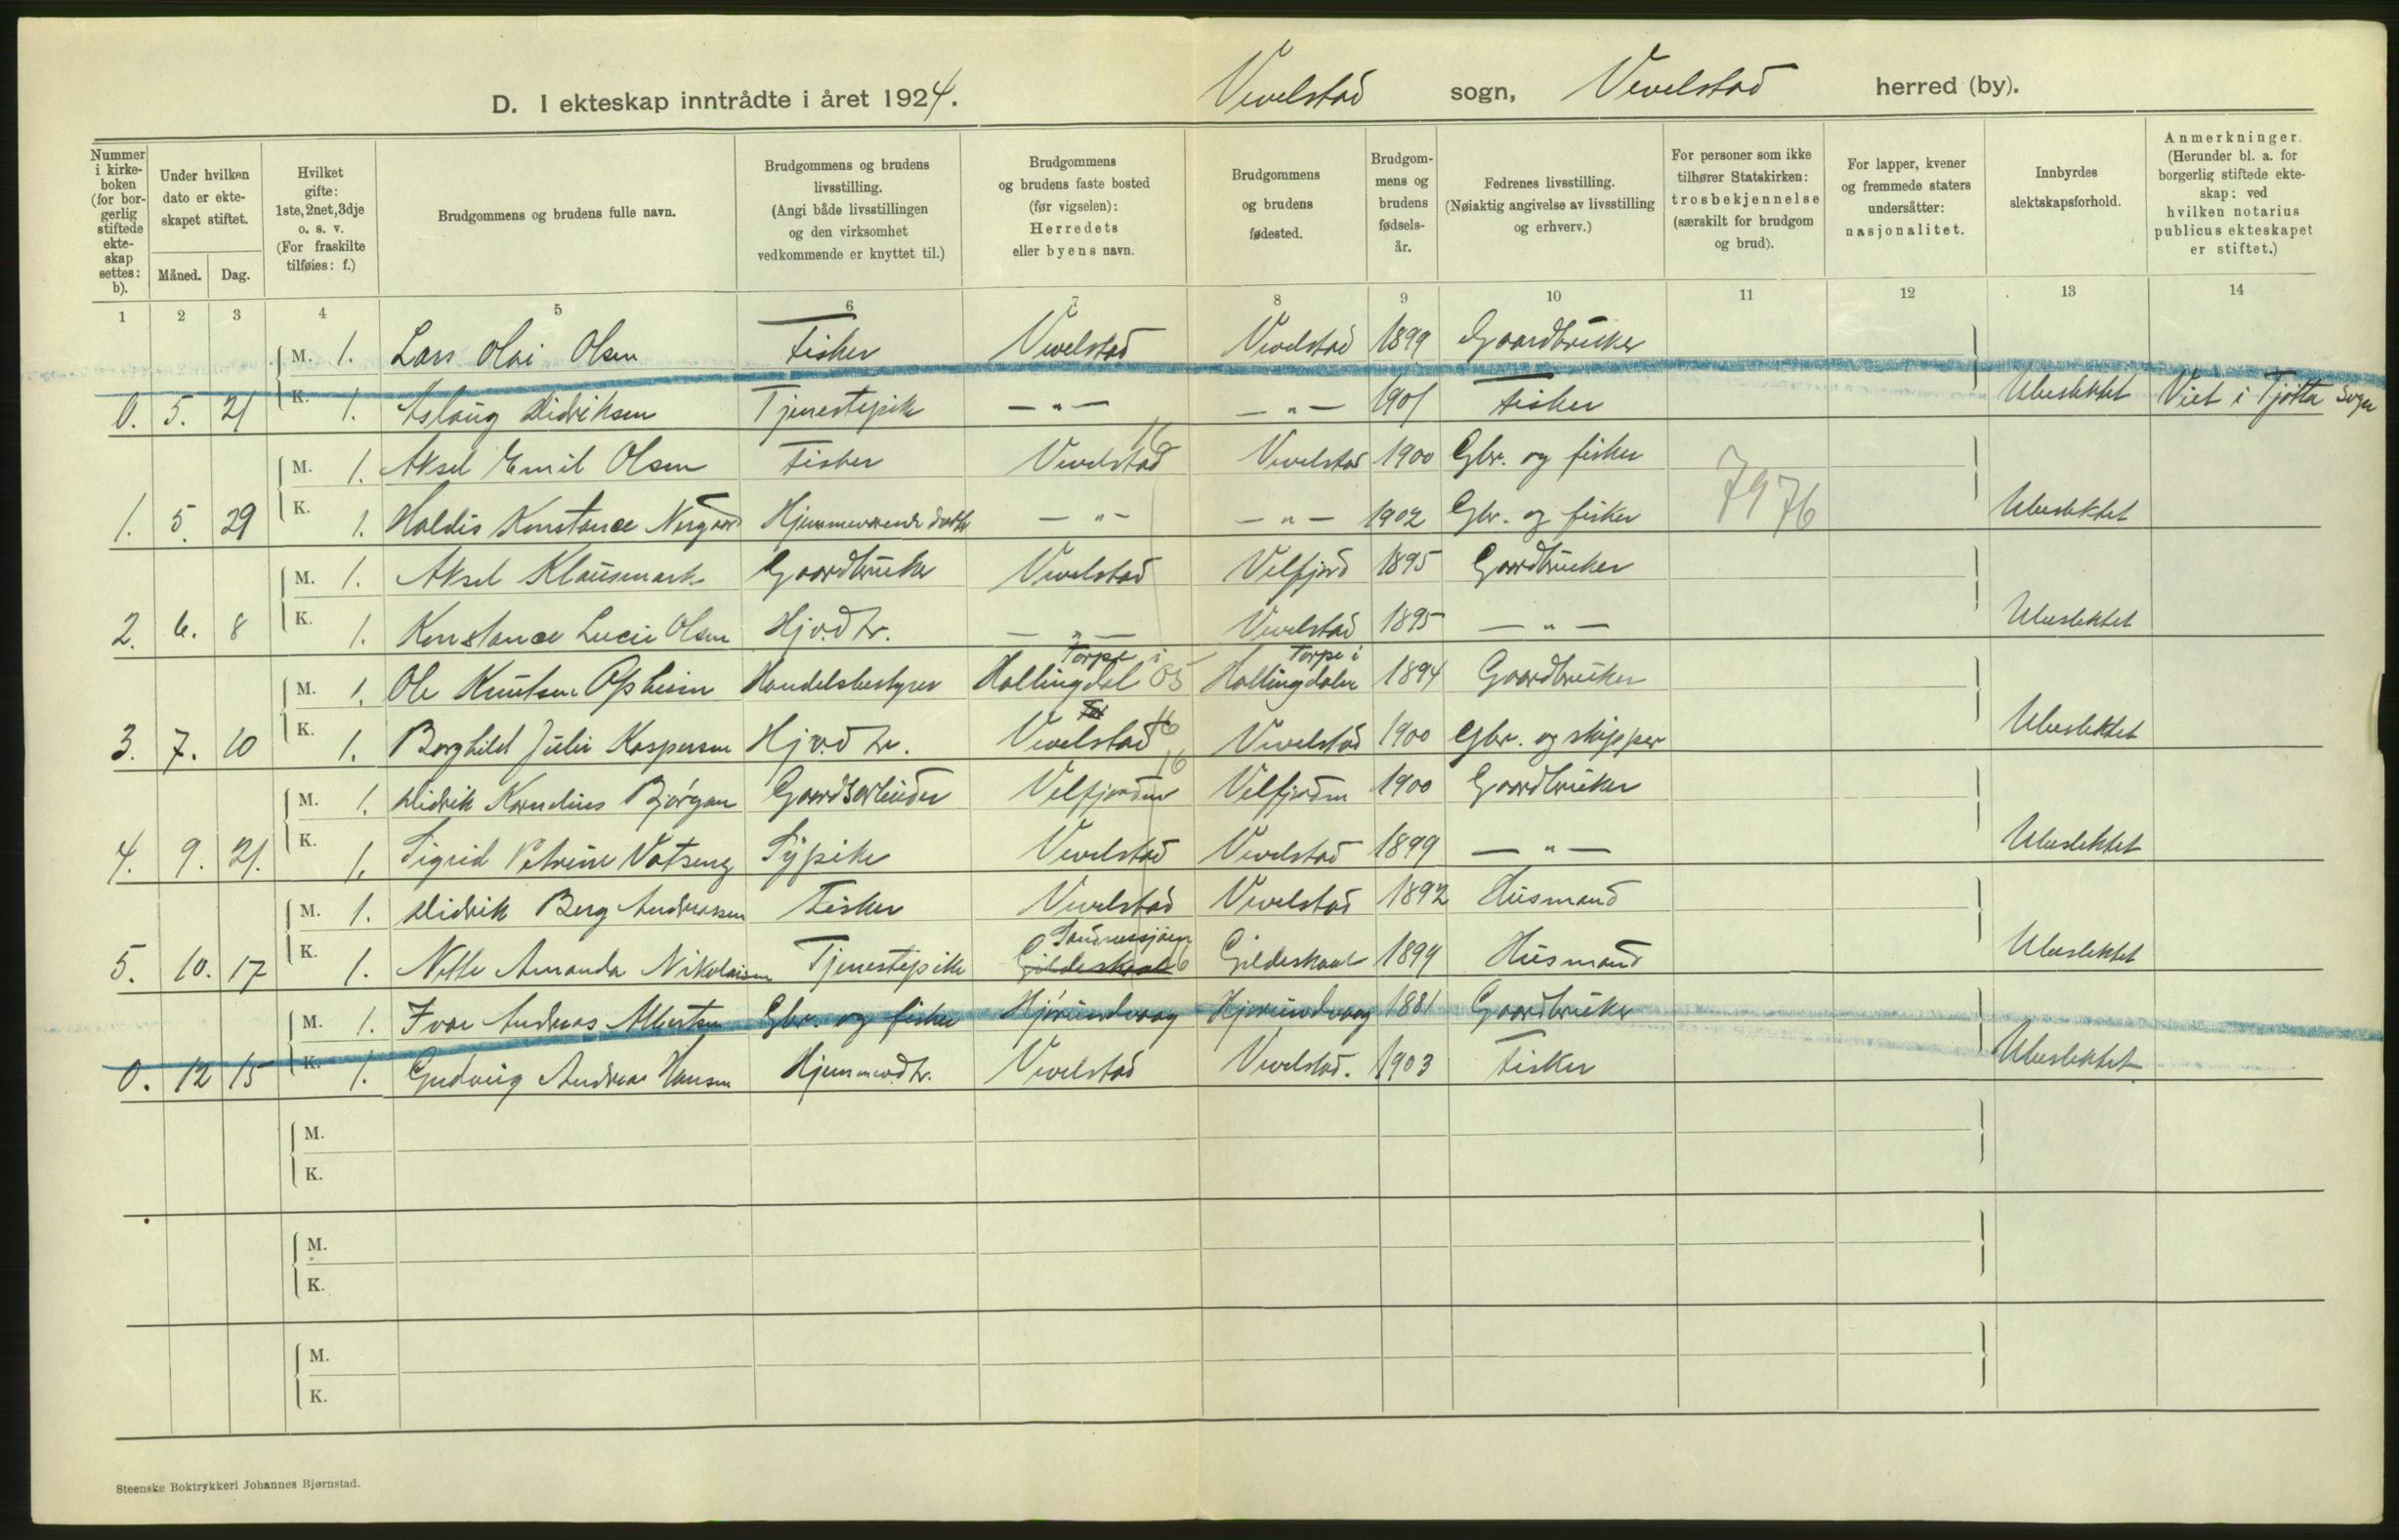 D. I ekteskap inntrådte i året 1924. Vevelstad sogn, Vevelstad herred (by).
Nummer i kirkeboken (for borgerlig stiftede ekteskap settes: b).
Under hvilken dato er ekteskapet stiftet.
Måned. Dag.
Hvilket gifte: 1ste, 2net, 3dje o. s. v. (For fraskilte tilføies: f.)
Brudgommens og brudens fulle navn.
Brudgommens og brudens livsstilling. (Angi både livsstillingen og den virksomhet vedkommende er knyttet til.)
Brudgommens og brudens faste bosted (før vigselen): Herredets eller byens navn.
Brudgommens og brudens fødested.
Brudgommens og brudens fødselsår.
Fedrenes livsstilling. (Nøiaktig angivelse av livsstilling og erhverv.)
For personer som ikke tilhører Statskirken: trosbekjennelse (særskilt for brudgom og brud).
For lapper, kvener og fremmede staters undersåtter: nasjonalitet.
Innbyrdes slektskapsforhold.
Anmerkninger. (Herunder bl. a. for borgerlig stiftede ekteskap: ved hvilken notarius publicus ekteskapet er stiftet.)
1 2 3 4 5 6 7 8 9 10 11 12 13 14
M. 1. Lars Olai Olsen Fisker Vevelstad Vevelstad 1899 Gaardbruker
0. 5. 21 K. 1. Aslaug Didriksen Tjenestepik — " — — " — 1901 Fisker Ubeslektet Viet i Tjøtta Sogn
16
M. 1. Aksel Emil Olsen Fisker Vevelstad Vevelstad 1900 Gbr. og fisker
7976
1. 5. 29 K. 1. Haldis Konstance Nergaard Hjemmeværende datter — " — — " — 1902 Gbr. og fisker Ubeslektet
M. 1. Aksel Klausmark Gaardbruker Vevelstad Velfjord 1895 Gaardbruker
2. 6. 8 K. 1. Konstance Lucie Olsen Hjv.dtr. — " — Vevelstad 1895 — " — Ubeslektet
Torpe i Torpe i
M. 1. Ole Knutsen Opheim Handelsbestyrer Hallingdal 05 Hallingdalen 1894 Gaardbruker
3. 7. 10 K. 1. Borghild Julie Kaspersen Hjv.dtr. Vevelstad 16 Vevelstad 1900 Gbr. og skipper Ubeslektet
16
M. 1. Didrik Kornelius Bjørgan Gaardsarbeider Velfjorden Velfjorden 1900 Gaardbruker
4. 9. 21. K. 1. Sigrid Petrine Vatseng Sypike Vevelstad Vevelstad 1899 — " — Ubeslektet
M. 1. Didrik Berg Andreassen Fisker Vevelstad Vevelstad 1892 Husmand
Sandnessjøen
5. 10. 17 K. 1. Nelle Amanda Nikolaisen Tjenestepike Gildeskaal 16 Gildeskaal 1894 Husmand Ubeslektet
M. 1. Ivar Andreas Albertsen Gbr. og fisker Hjørundvaag Hjørundvaag 1881 Gaardbruker
0. 12 15 K. 1. Gudveig Andrea Hansen Hjemmevdtr. Vevelstad Vevelstad. 1903 Fisker Ubeslektet
M.
K.
M.
K.
M.
K.
Steenske Boktrykkeri Johannes Bjørnstad.